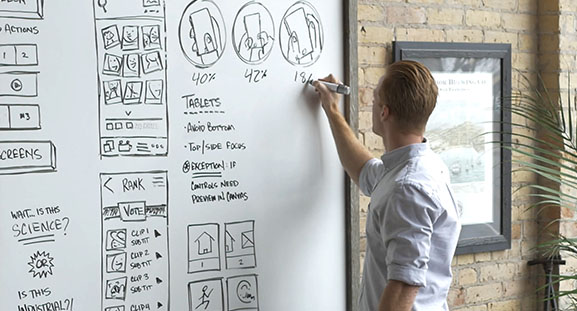 ACTIONS
1 2
#3
SCREENS
WAIT.. IS THIS
SCIENCE?
OR
IS THIS
INDUSTRIAL?!
RANK
VOTE
CLIP 1
SUBTIT
CLIP 2
SUBTIT
CLIP 3
SUBTIT
CLIP 4
40%
42%
18%
TABLETS
• AVOID BOTTOM
• TOP/SIDE FOCUS
EXCEPTION: IF
CONTROLS NEED
PREVIEW IN CANVAS
1 2